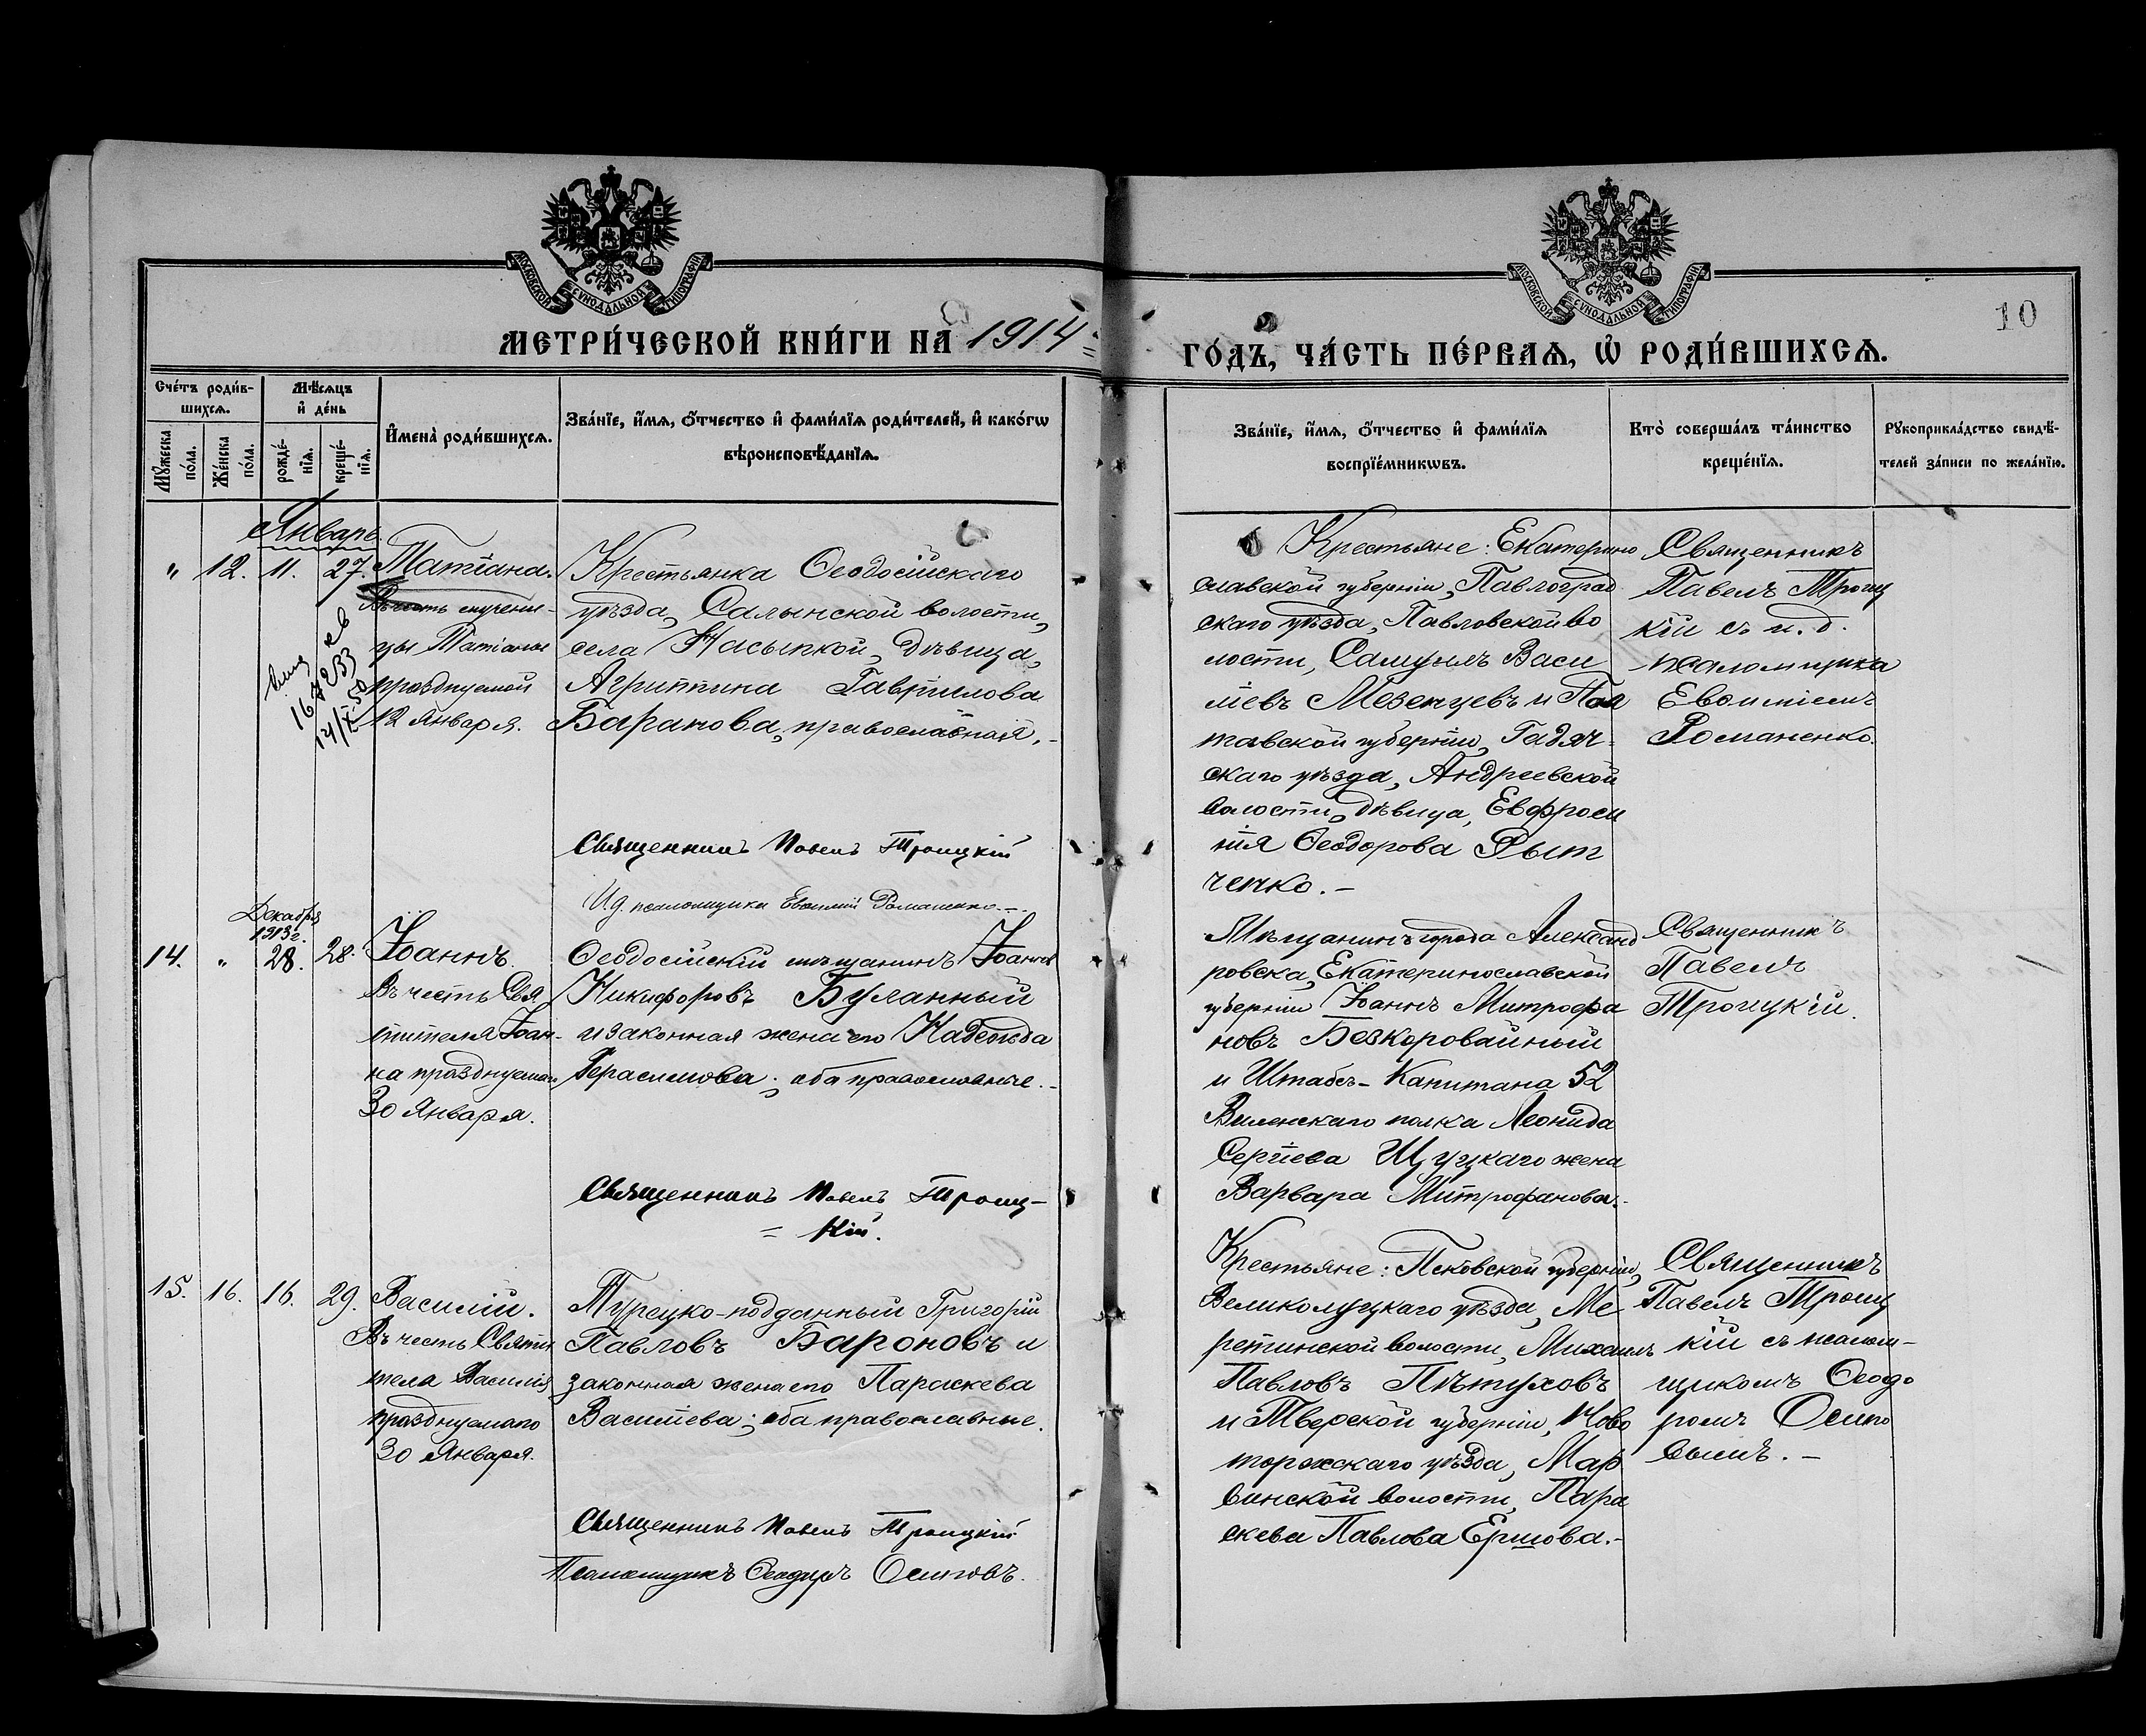 МОСКОВСКОЙ СУНОДАЛЬНОЙ ТИПОГРАФІИ
МЕТРИ́ЧЕСКОЙ КНИ́ГИ НА 1914
Сче́тъ роди́в-
шихсѧ.
Мѣ́сѧцъ
и҆ де́нь
Мꙋ́жеска по́ла.
Же́нска по́ла.
рожде́-
нїѧ.
креще́-
нїѧ.
И҆мена̀ роди́вшихсѧ.
Зва́нїе, и҆́мѧ, ѻ҆́тчество и҆ фами́лїѧ роди́телей, и҆ како́гѡ
вѣроисповѣ́данїѧ.
Январь
" 12. 11. 27. Татіана.
Въ честь мучени-
цы Татіаны
празднуемой
12 Января.
167233
14/IX.50
Крестьянка Ѳеодосійскаго
уѣзда, Салынской волости,
села Насыпкой, дѣвица,
Агриппина Гавріилова
Баранова, православная.-
Священникъ Павелъ Троицкій
И.д. псаломщика Евѳимій Романенко.-
Декабря
1913 г.
14. " 28. 28. Іоаннъ.
Въ честь Свя
тителя Іоан-
на празднуемаго
30 Января.
Ѳеодосійскій мѣщанинъ Іоаннъ
Никифоровъ Буланный
и законная жена его Надежда
Герасимова; оба православные.-
Священникъ Павелъ Троиц-
= кій.
15. 16. 16. 29. Василій.
Въ честь Святи
теля Василія
празднуемаго
30 Января.
Турецко-подданный Григорій
Павловъ Бароновъ и
законная жена его Параскева
Василіева; оба православные.
Священникъ Павелъ Троицкій
Псаломщикъ Ѳеодоръ Осиповъ.
МОСКОВСКОЙ СУНОДАЛЬНОЙ ТИПОГРАФІИ
10
ГО́ДЪ, ЧА́СТЬ ПЕ́РВАѦ, Ѡ҆ РОДИ́ВШИХСѦ.
Зва́нїе, и҆́мѧ, ѻ҆́тчество и҆ фами́лїѧ
воспрїе́мникѡвъ.
Кто̀ соверша́лъ та́инство
креще́нїѧ.
Рꙋкоприкла́дство свидѣ́-
телей за́писи по жела́нїю.
Крестьяне: Екатерино
славской губерніи, Павлоград
скаго уѣзда, Павловской во
лости, Самуилъ Васи
ліевъ Мезенцевъ и Пол
тавской губерніи, Гадяч-
скаго уѣзда, Андреевской
волости, дѣвица, Евфроси
нія Ѳеодорова Рыт
ченко.-
Священникъ
Павелъ Троиц
кій съ и.д.
псаломщика
Евѳиміемъ
Романенко.
Мѣщанинъ города Александ
ровска, Екатеринославской
губерніи Іоаннъ Митрофа
новъ Безкоровайный
и Штабсъ-Капитана 52
Виленскаго полка Леонида
Сергіева Щуцкаго жена
Варвара Митрофанова.-
Священникъ
Павелъ
Троицкій.
Крестьяне: Псковской губерніи,
Великолуцкаго уѣзда, Ме
ретинской волости, Михаилъ
Павловъ Пѣтуховъ
и Тверской губерніи, Ново
торжскаго уѣзда, Мар
винской волости, Пара
скева Павлова Ершова.-
Священникъ
Павелъ Троиц
кій съ псалом-
щикомъ Ѳеодо
ромъ Осипо
вымъ.-